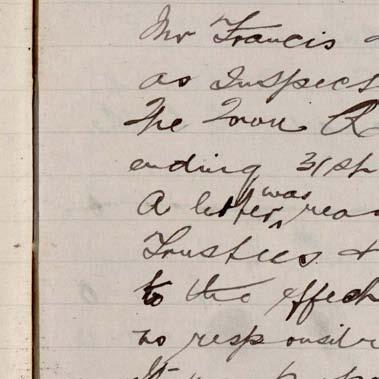 Mr Francis
as Inspect
The Town R
ending 31st
A letter was read
Trustees &
to the effect
no responsi